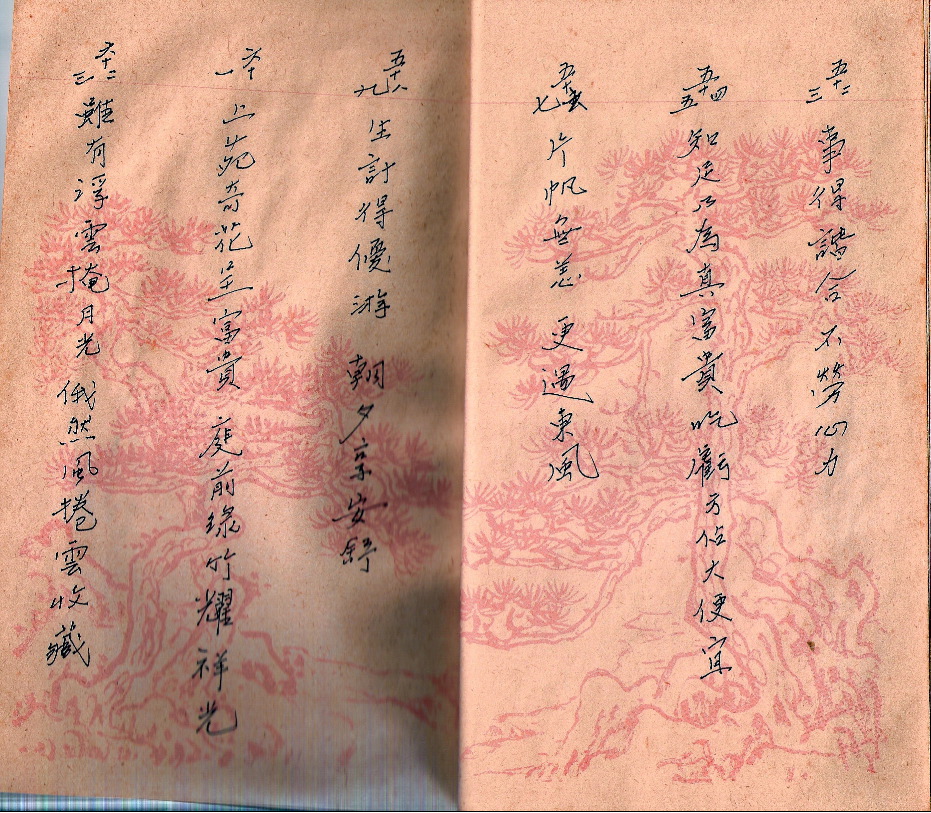 五十二 三 事得諧合不勞心力
五十四 五 知足乃為真富貴吃虧方佔大便宜
五十六 七 片帆無恙 更遇東風
五十八 九 生計得優游 朝夕安舒
六十 一 上苑奇花呈富貴 庭前綠竹耀祥光
六十二 三 雖有浮雲掩月光 俄然風捲雲收藏